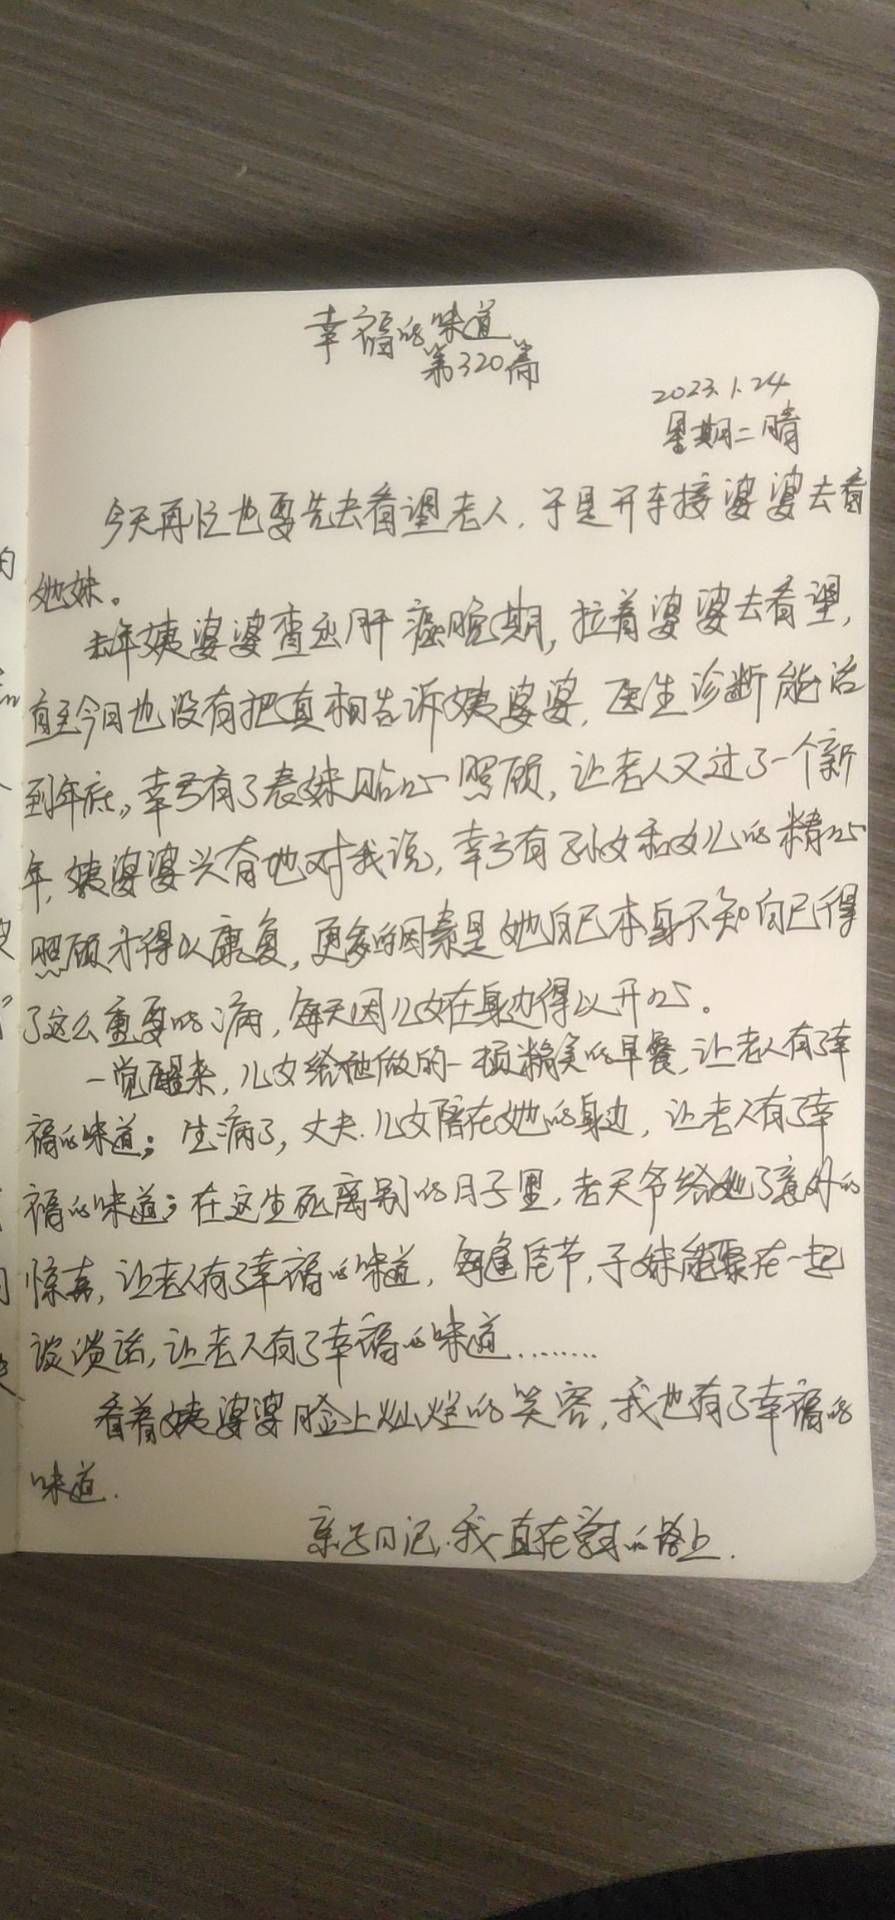 幸福的味道
第320篇
2023.1.24
星期二晴
今天再忙也要先去看望老人,于是开车接婆婆去看
她妹。
去年姨婆婆查出肝癌晚期,拉着婆婆去看望,
直至今日也没有把真相告诉姨婆婆,医生诊断能活
到年底,幸亏有了表妹贴心照顾,让老人又过了一个新
年,姨婆婆兴奋地对我说,幸亏有孙女和女儿的精心
照顾才得以康复,更多的因素是她自己本身不知自己得
了这么重要的病,每天因儿女在身边得以开心。
一觉醒来,儿女给她做的一顿精美的早餐,让老人有了幸
福的味道;生病了,丈夫.儿女陪在她的身边,让老人有了幸
福的味道;在这生死离别的日子里,老天爷给她了意外的
惊喜,让老人有了幸福的味道,每逢佳节,子妹能聚在一起
谈谈话,让老人有了幸福的味道………
看着姨婆婆脸上灿烂的笑容,我也有了幸福的
味道.
亲子日记,我一直在的路上.